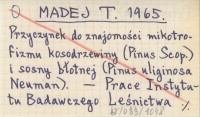 MADEJ T. 1965.
Przyczynek do znajomości mikotro-
fizmu kosodrzewiny (Pinus Scop.)
i sosny błotnej (Pinus uliginosa
Neuman). — Prace Instytu-
tu Badawczego Leśnictwa